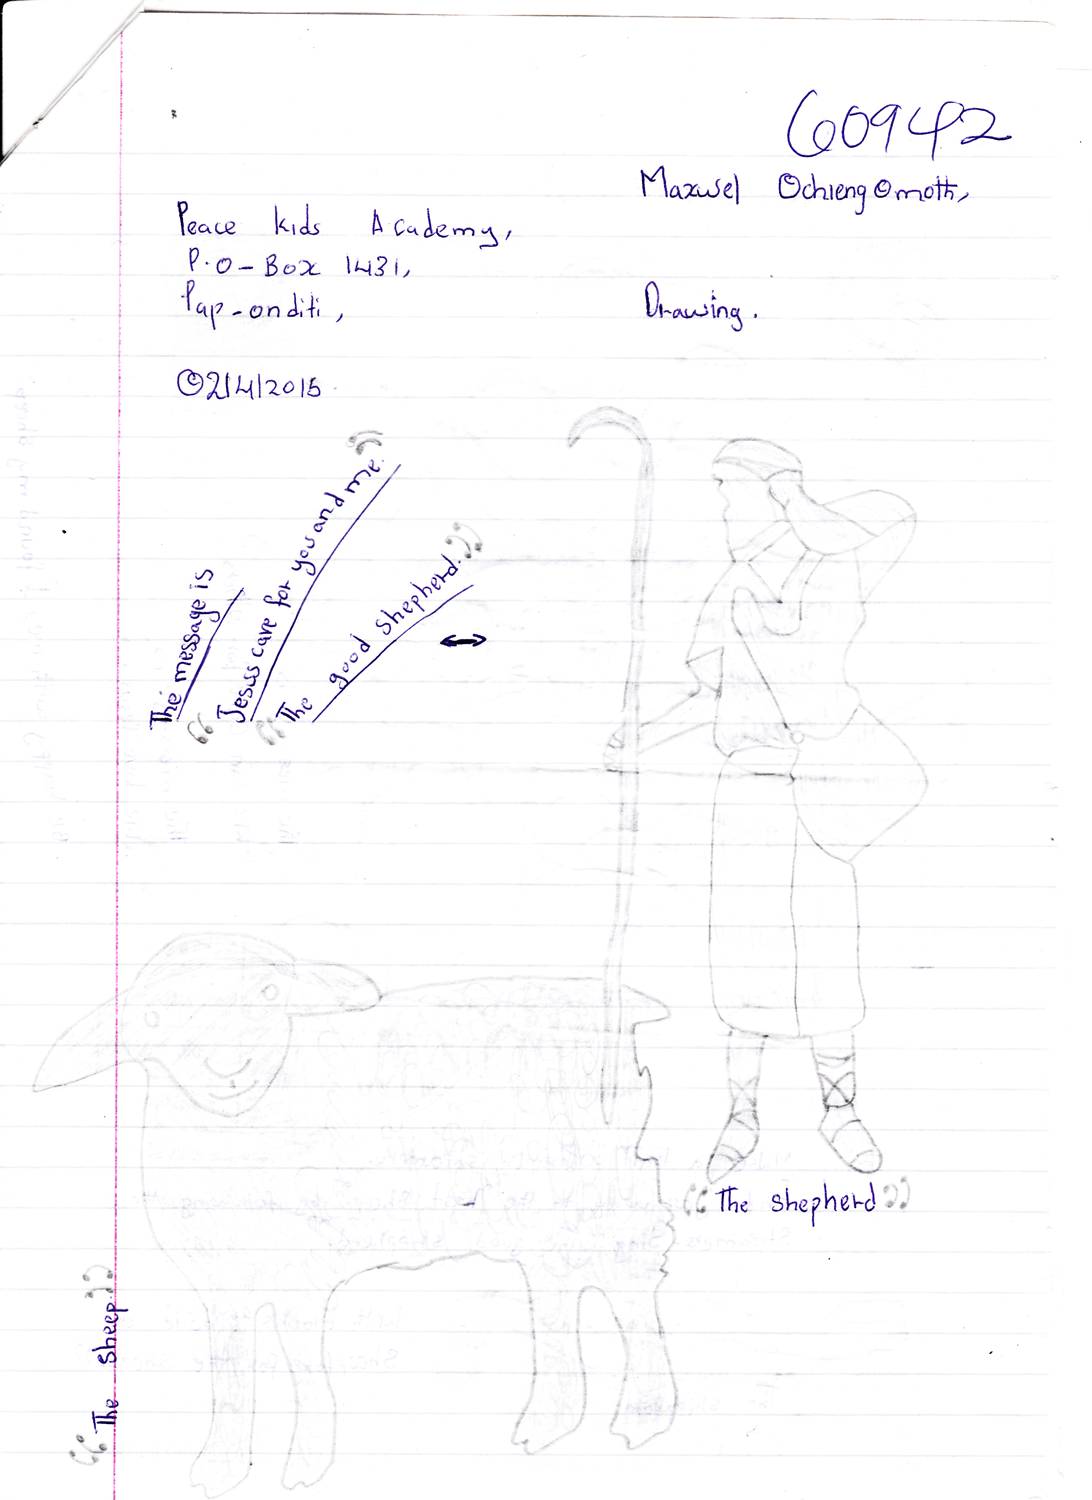 60942
Maxwel Ochieng Omoth,
Peace kids Academy,
P.O-Box 1431,
Pap-onditi,
Drawing.
02/4/2015
The message is
"Jesus care for you and me."
"The good shepherd."
"The shepherd"
"The sheep."